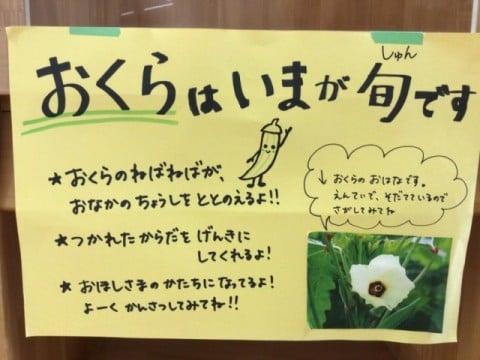 しゅん
おくらはいまが旬です
★おくらのねばねばが、
おなかのちょうしをととのえるよ!!
★つかれたからだをげんきに
してくれるよ!
★おほしさまのかたちになってるよ!
よーくかんさつしてみてね!!
↓おくらのおはなです。
えんていで、そだてているので
さがしてみてね